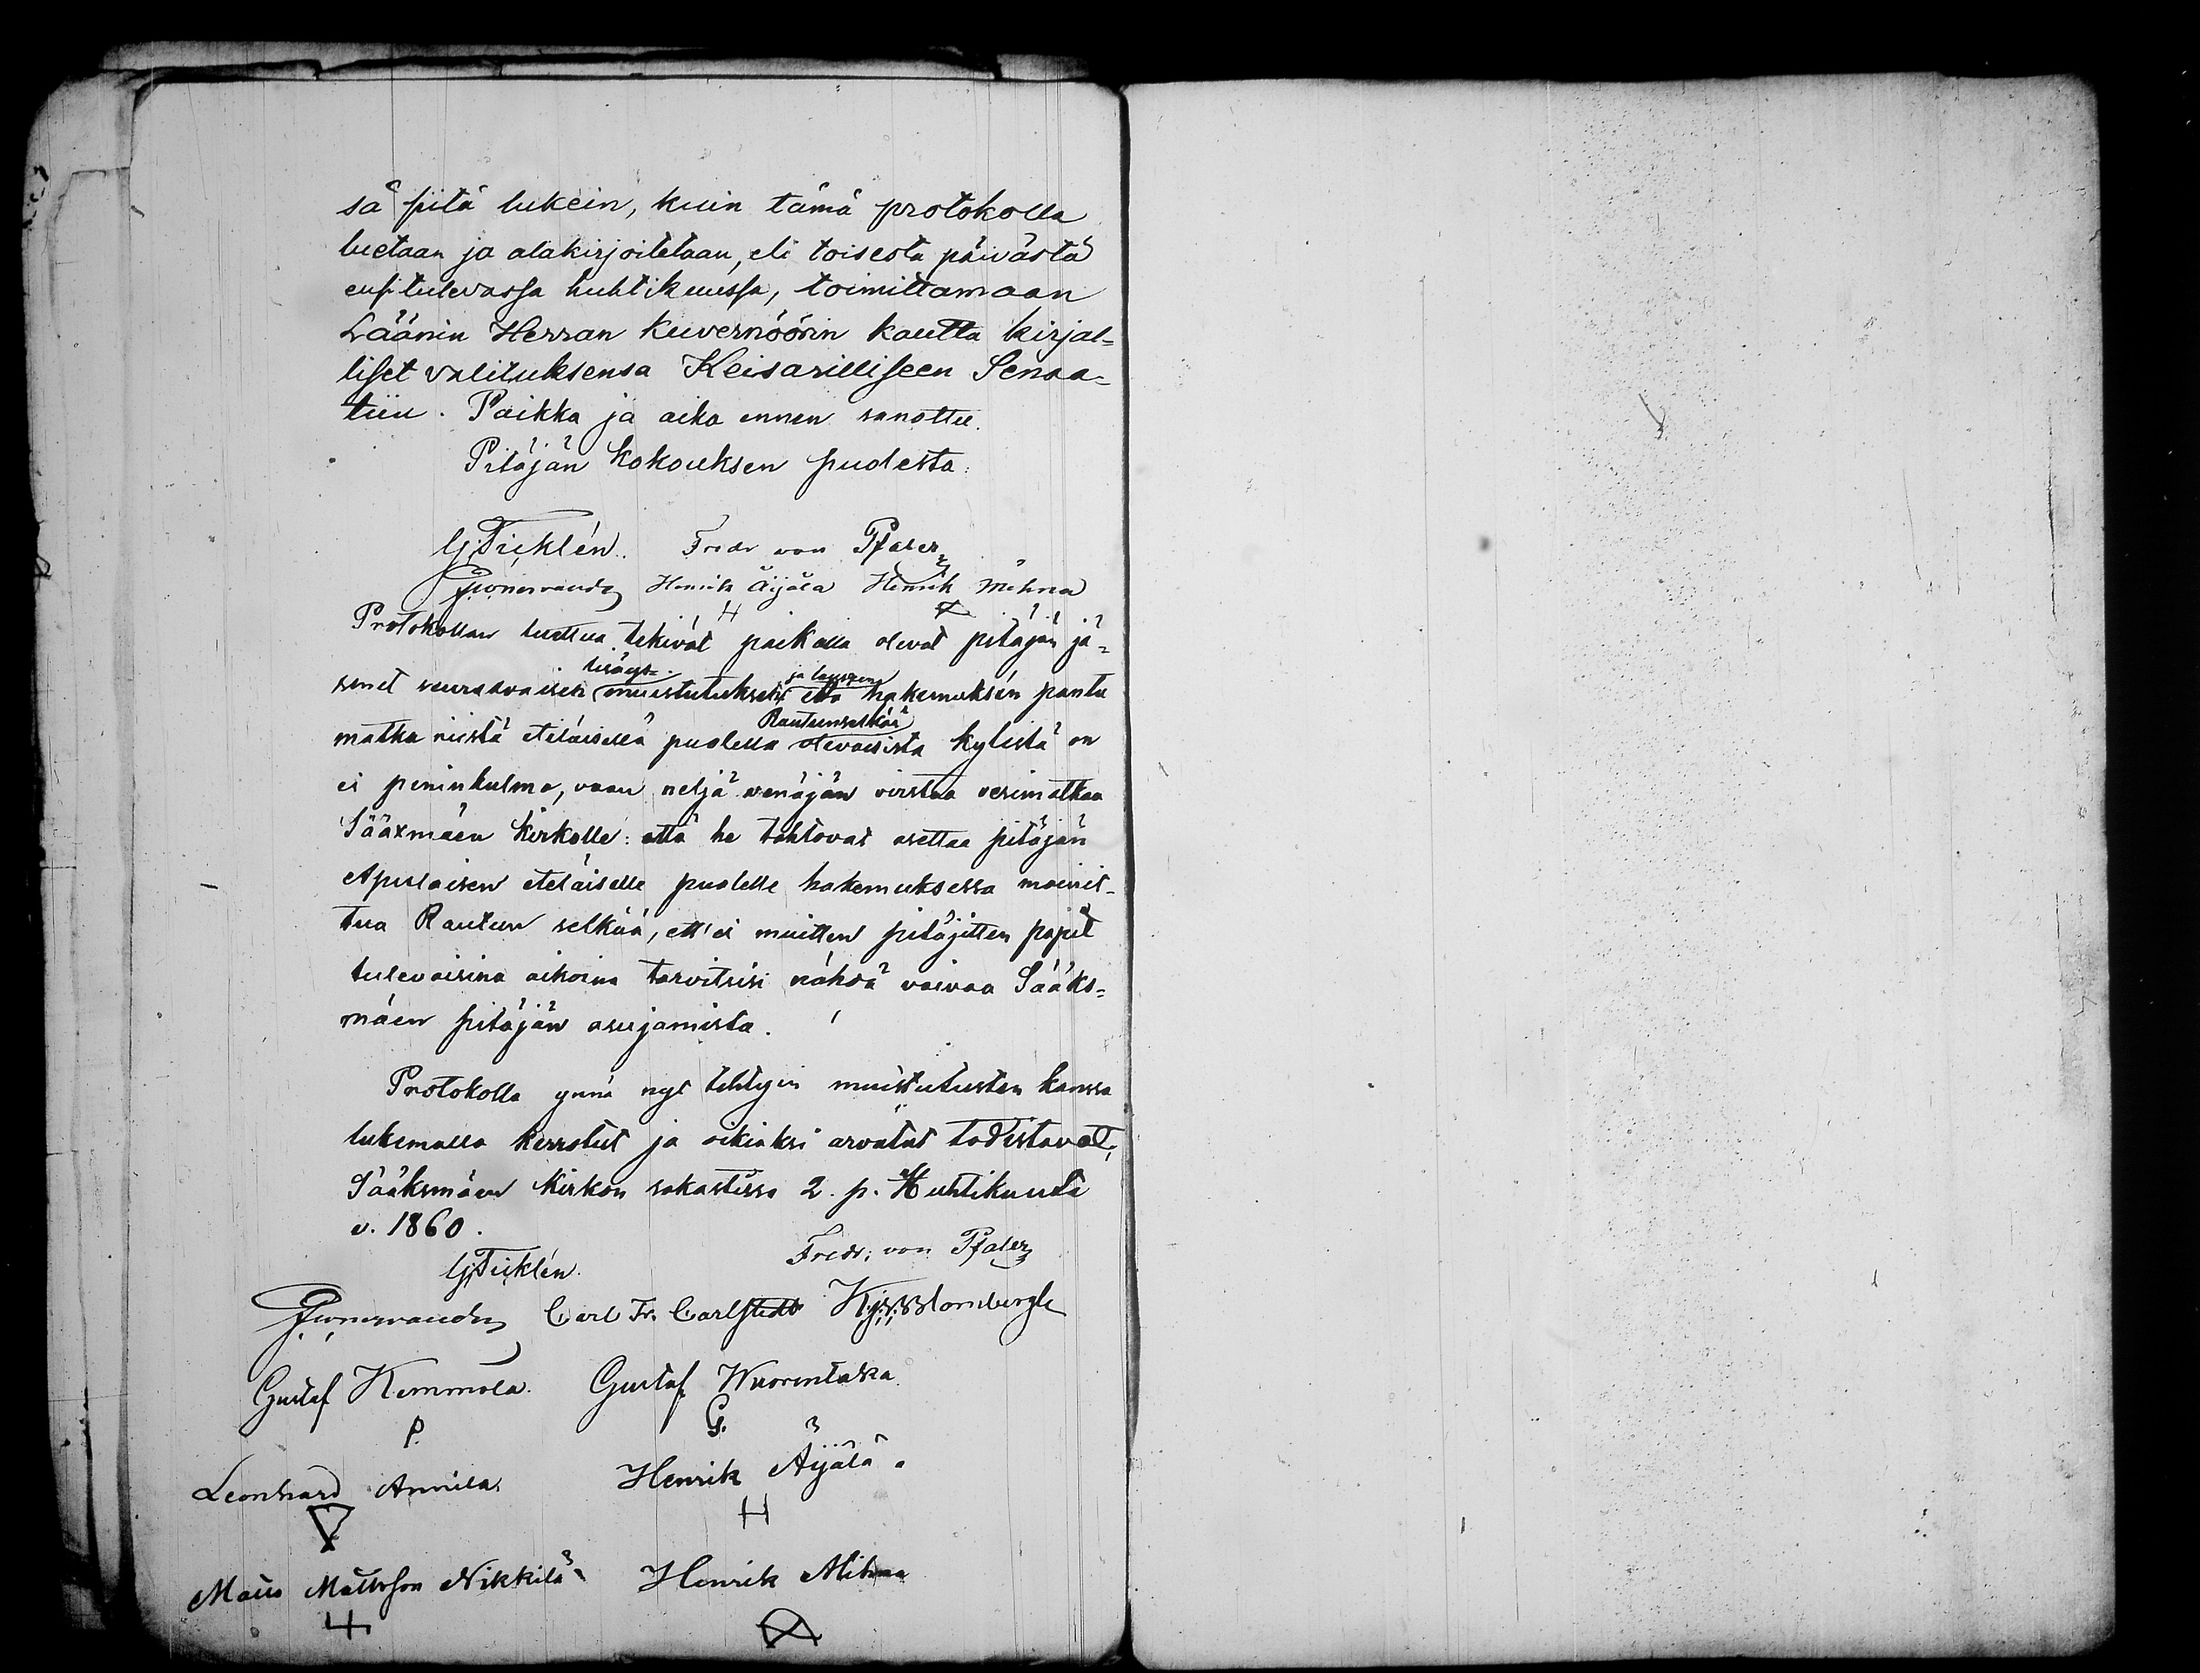 sä pitä lukein, kuin tämä protokolla
luetaan ja alakirjoitetaan, eli toisesta päivästä
ensitulevassa huhtikuussa, toimittamaan
Läänin Herran Kuvernöörin kautta kirjal-
liset valituksensa Keisarilliseen Senaa-
tiin. Paikka ja aika ennen sanottu.
Pitäjän kokouksen puolesta:
Fredr von Pfaler
Henrik Äijälä Henrik Mihna
Protokollan luettua tekivät paikalla olevat pitäjän jä-
lisäys- ja lausuen
senet seuraavaisen muistutuksen että hakemuksen pantu
Rautunselkää
matka niistä eteläisellä puolella olevaisista kylistä on
ei peninkulma, vaan neljä venäjän virstaa vesimatkaa
Sääxmäen kirkolle: että he tahtovat asettaa pitäjän
Apulaisen eteläiselle puolelle hakemuksessa mainit-
tua Rautun selkää, ett'ei muitten pitäjitten papit
tulevaisina aikoina tarvitsisi nähdä vaivaa Sääks-
mäen pitäjän asujamista.
Protokolla ynnä nyt tehtyin muistutusten kanssa
lukemalla kerrotut ja oikiaksi arvatut todistavat,
Sääksmäen Kirkon sakastissa 2. p. Huhtikuuta
v. 1860.
Fredr. von Pfaler
Carl Fr. Carlstedt Blombergh
Gustaf Kemmola. Gustaf Wuorentaka
P. G.
Leonhard Annila Henrik Äijälä.
H
Matts Mattsson Nikkilä Henrik Mihna